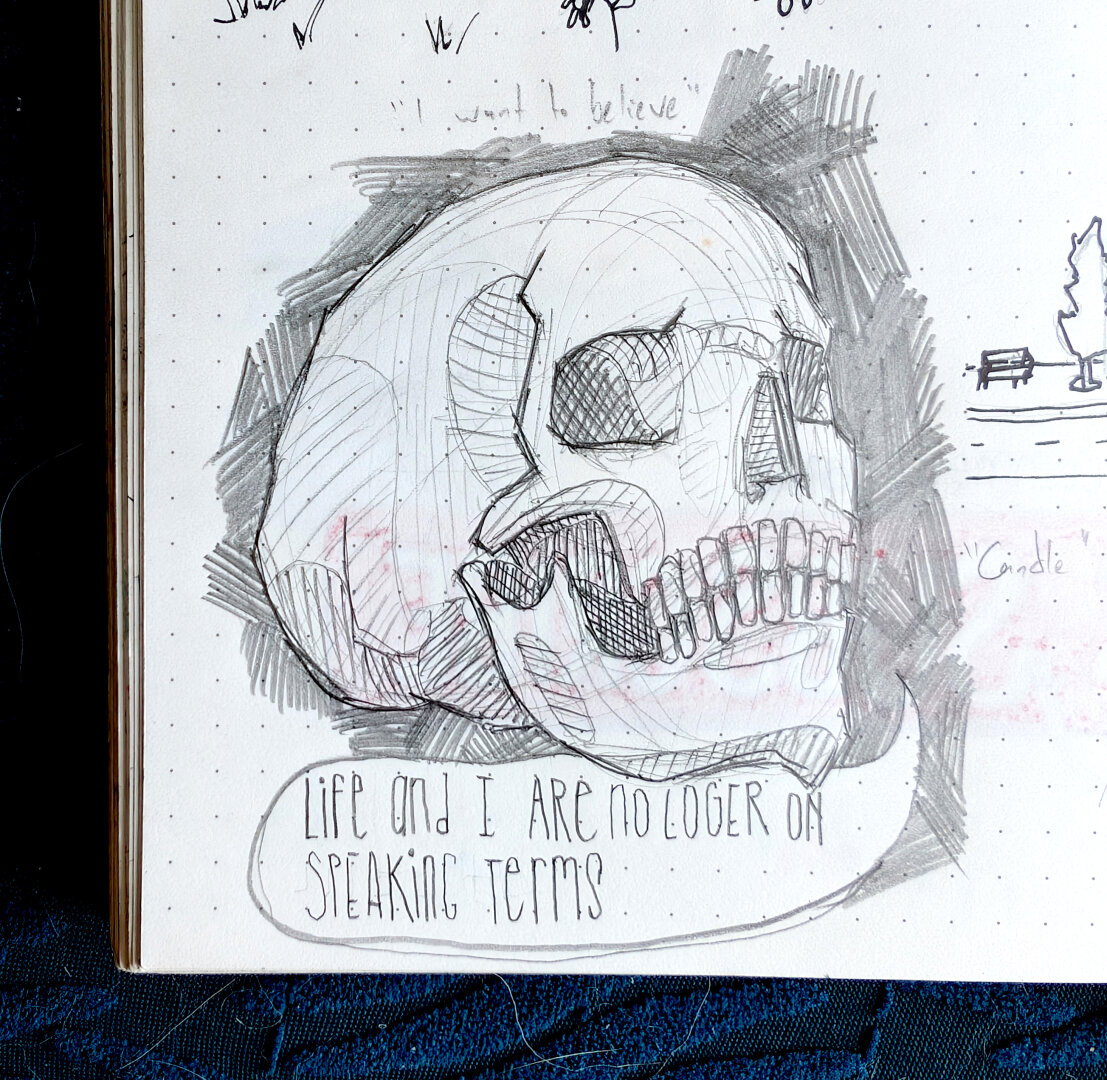 "I want to believe"
"Candle"
Life and I ARE no LOGER ON
SPEAKING TerMS